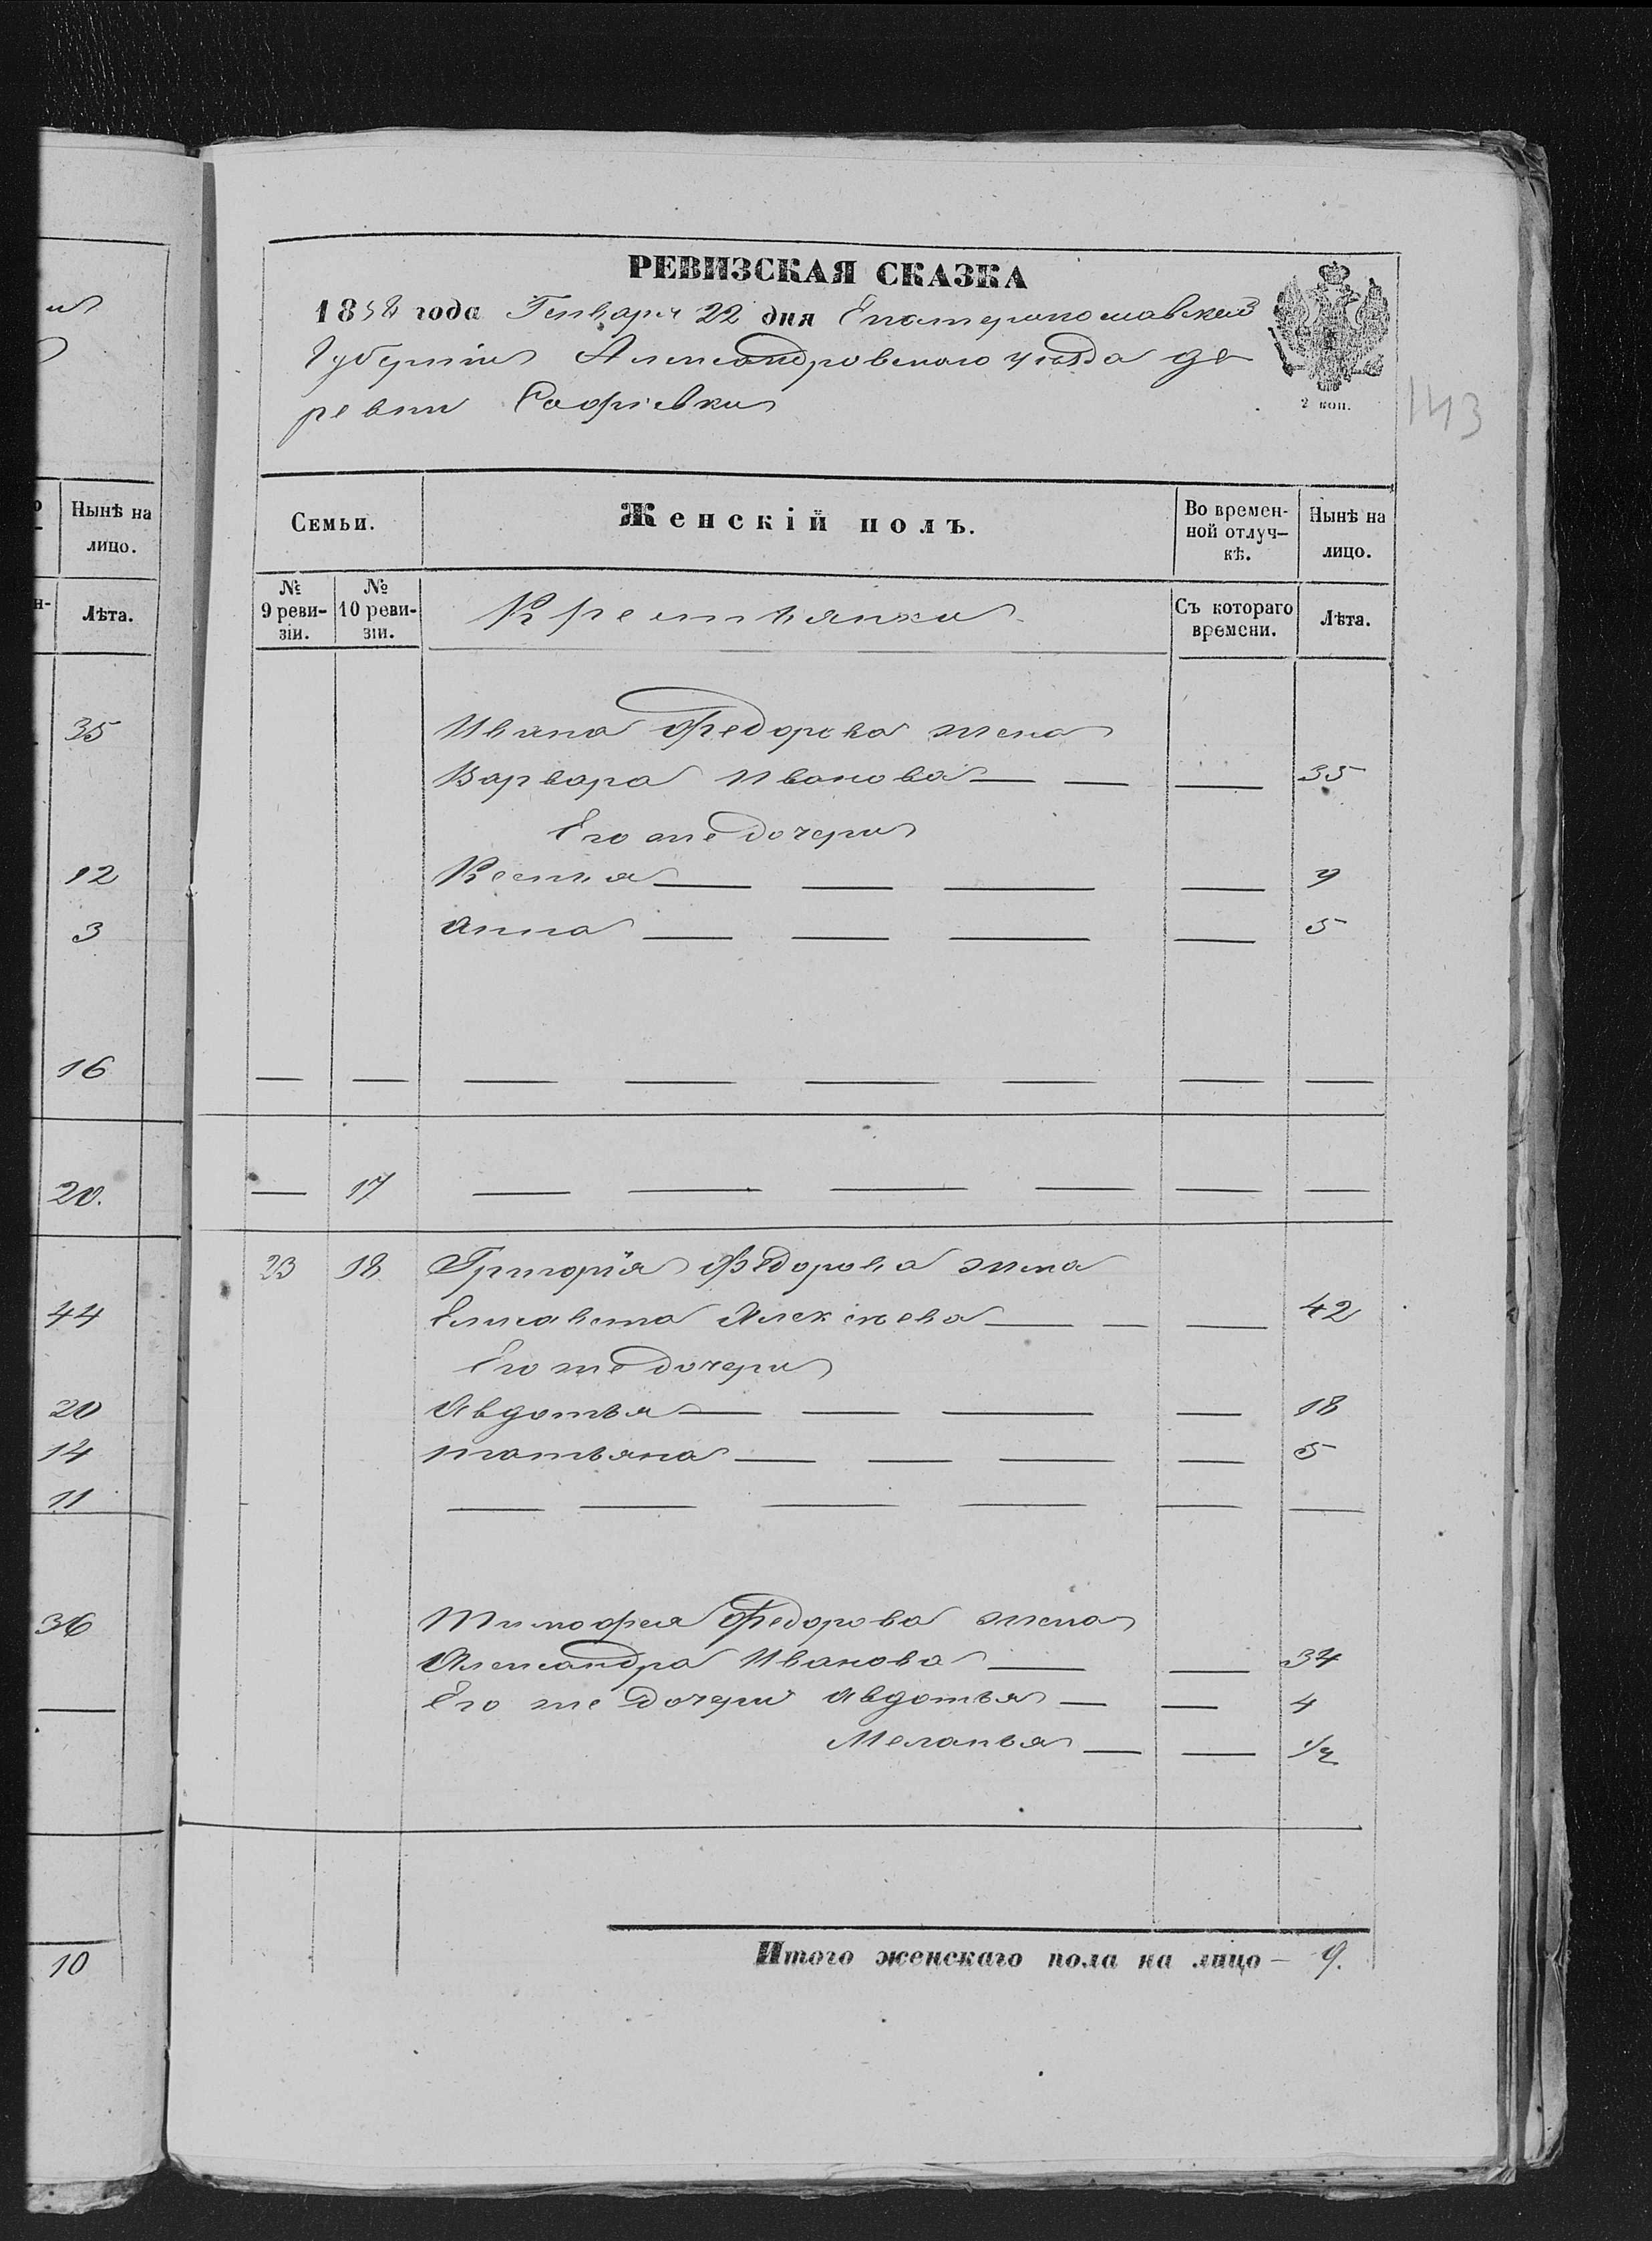 РЕВИЗСКАЯ СКАЗКА
1858 года Генваря 22 дня Екатеринославской
Губерніи Александровского уѣзда де
ревни Софіевки
2 коп.
143
Нынѣ на
лицо.
Лѣта.
35
12
3
16
20.
44
20
14
11
36
10
Семьи.
Женскій полъ.
Во времен-
ной отлуч-
кѣ.
Нынѣ на
лицо.
№
9 реви-
зіи.
№
10 реви-
зіи.
Крестьянки
Съ котораго
времени.
Лѣта.
Ивана Федорова жена
Варвара Иванова — — — 35
Его же дочери
Ксенья — — — — 9
Анна — — — — 5
— — — — — — — —
— 17 — — — — — —
23 18 Григорія Федорова жена
Елисавета Алексѣева — — — 42
Его же дочери
Авдотья — — — — 18
Татьяна — — — — 5
— — — — — —
Тимофея Федорова жена
Александра Иванова — — 34
Его же дочери Авдотья — — 4
Меланья — — 1/2
Итого женскаго пола на лицо — 9.